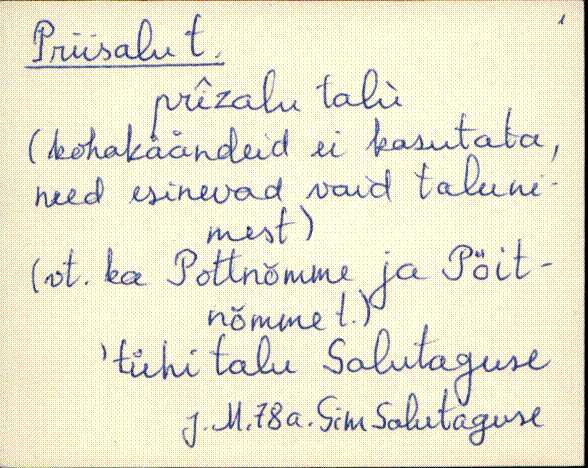 Priisalu t.
prîzalu talù
(kohakäändeid ei kasutata,
need esinevad vaid taluni-
mest)
(vt. ka Pottnõmme ja Pöit-
nõmme t.)
'tühi talu Salutaguse
J. M. 78 a. Sim Salutaguse